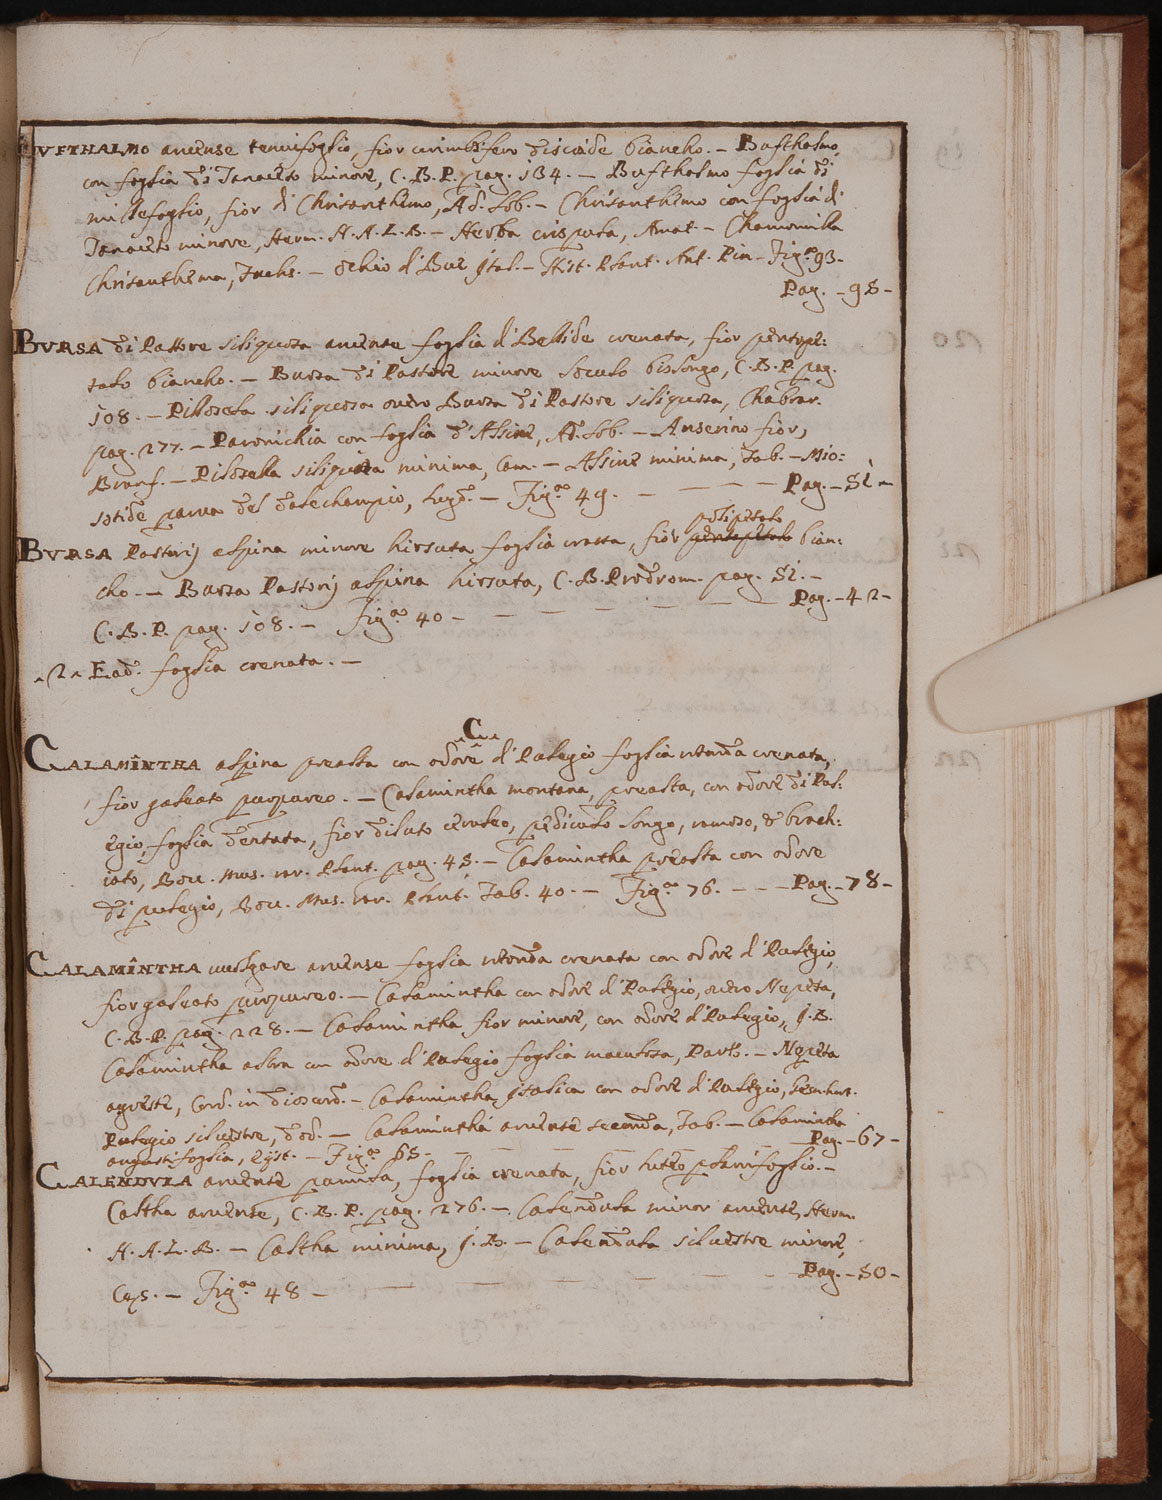 BVFTHALMO aruense tenuifoglio, fior corimbifero discoide biancho. - Bufthalmo
con foglia di Tanaceto minore, C. B. P. pag. 134. - Bufthalmo foglia di
millefoglio, fior di Chrisanthemo, Ad. Lob. - Chrisanthemo con foglia di
Tanaceto minore, Herm. H. A. L. B. - Herba crispula, Amat. - Chamomilla
Chrisanthema, Fuchs. - Ochio di Bue Ital. - Hist. Plant. Ant. Pin - Fig.ª 93 -
Pag. - 98 -
BVRSA di Pastore siliquosa aruense foglia di Bellide crenata, fior pentape:
talo biancho. - Bursa di Pastore minore loculo bislongo, C. B. P. pag.
108. - Pilosela siliquosa overo Bursa di Pastore siliquosa, Chabrar.
pag. 277. - Paronichia con foglia d'Alsine, Ad. Lob. - Anserino fior,
Brunf. - Pilosella siliquosa minima, Cam. - Alsine minima, Tab. - Mio:
sotide parua del dalechampio, Lugd. - Fig.ª 49. - - - - Pag. - 51 -
BVRSA Pastorij alpina minore hirsuta foglia crassa, fior pentapetalo polipetalo bian:
cho. - Bursa Pastorij alpina hirsuta, C. B. Prodrom. pag. 51. -
C. B. P. pag. 108. - Fig.ª 40 - - - - - - - Pag. - 42 -
- 2 - Ead. foglia crenata. -
- C -
CALAMINTHA alpina prealta con odore di Pulegio foglia rotonda crenata,
fior galeato purpureo. - Calamintha montana, prealta, con odore di Pul:
egio, foglia dentata, fior diluto ceruleo, pediculo longo, ramoso, & brach:
iato, Bocc. Mus. rar. Plant. pag. 45. - Calamintha prealta con odore
di pulegio, Bocc. Mus. rar. Plant. Tab. 40. - Fig.ª 76. - - - Pag. - 78 -
CALAMINTHA uulgare aruense foglia rotonda crenata con odore di Pulegio,
fior galeato purpureo. - Calamintha con odore di Pulegio, overo Nepeta,
C. B. P. pag. 228. - Calamintha fior minore, con odore di Pulegio, I. B.
Calamintha altra con odore di Pulegio foglia maculosa, Park. - Nepeta
agreste, Cord. in dioscord. - Calamintha Italica con odore di Pulegio,
Pulegio siluestre, dod. - Calamintha aruense seconda, Tab. - Calamintha
angustifoglia, Eyst. - Fig.ª 65 - - - - - - Pag. - 67 -
CALENDVLA aruense parula, foglia crenata, fior luteo planifoglio. -
Caltha aruense, C. B. P. pag. 276. - Calendula minor aruense, Herm.
H. A. L. B. - Caltha minima, I. B. - Calendula siluestre minore,
Cęs. - Fig.ª 48 - - - - - - Pag. - 50 -